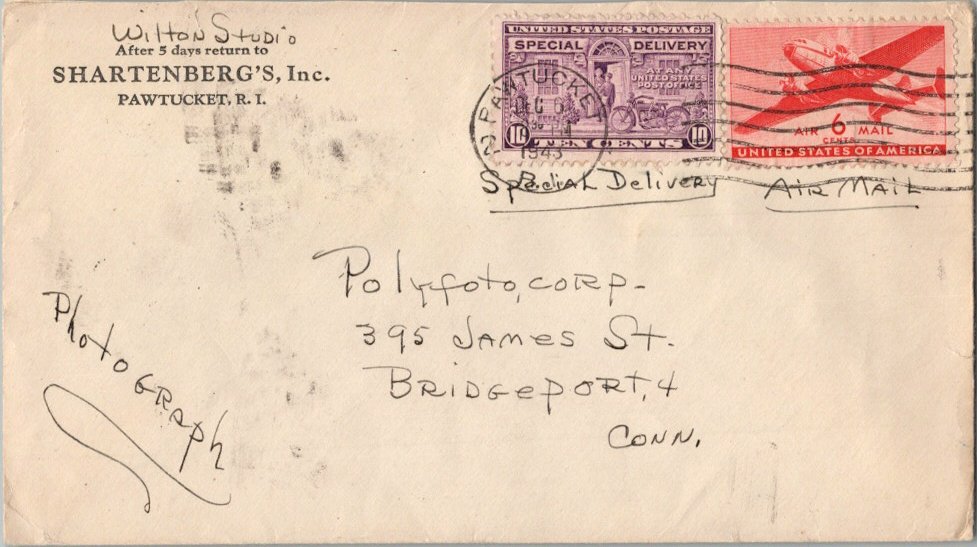 Wilton Studio
After 5 days return to
SHARTENBERG'S, Inc.
PAWTUCKET, R. I.
UNITED STATES POSTAGE
SPECIAL DELIVERY
AT ANY
UNITED STATES
POST OFFICE
10 10
TEN CENTS
AIR 6 MAIL
CENTS
UNITED STATES OF AMERICA
PAWTUCKET
1943
R.I.
Special Delivery
Air Mail
Polyfoto, Corp-
395 James St.
Bridgeport, 4
Conn.
Photograph